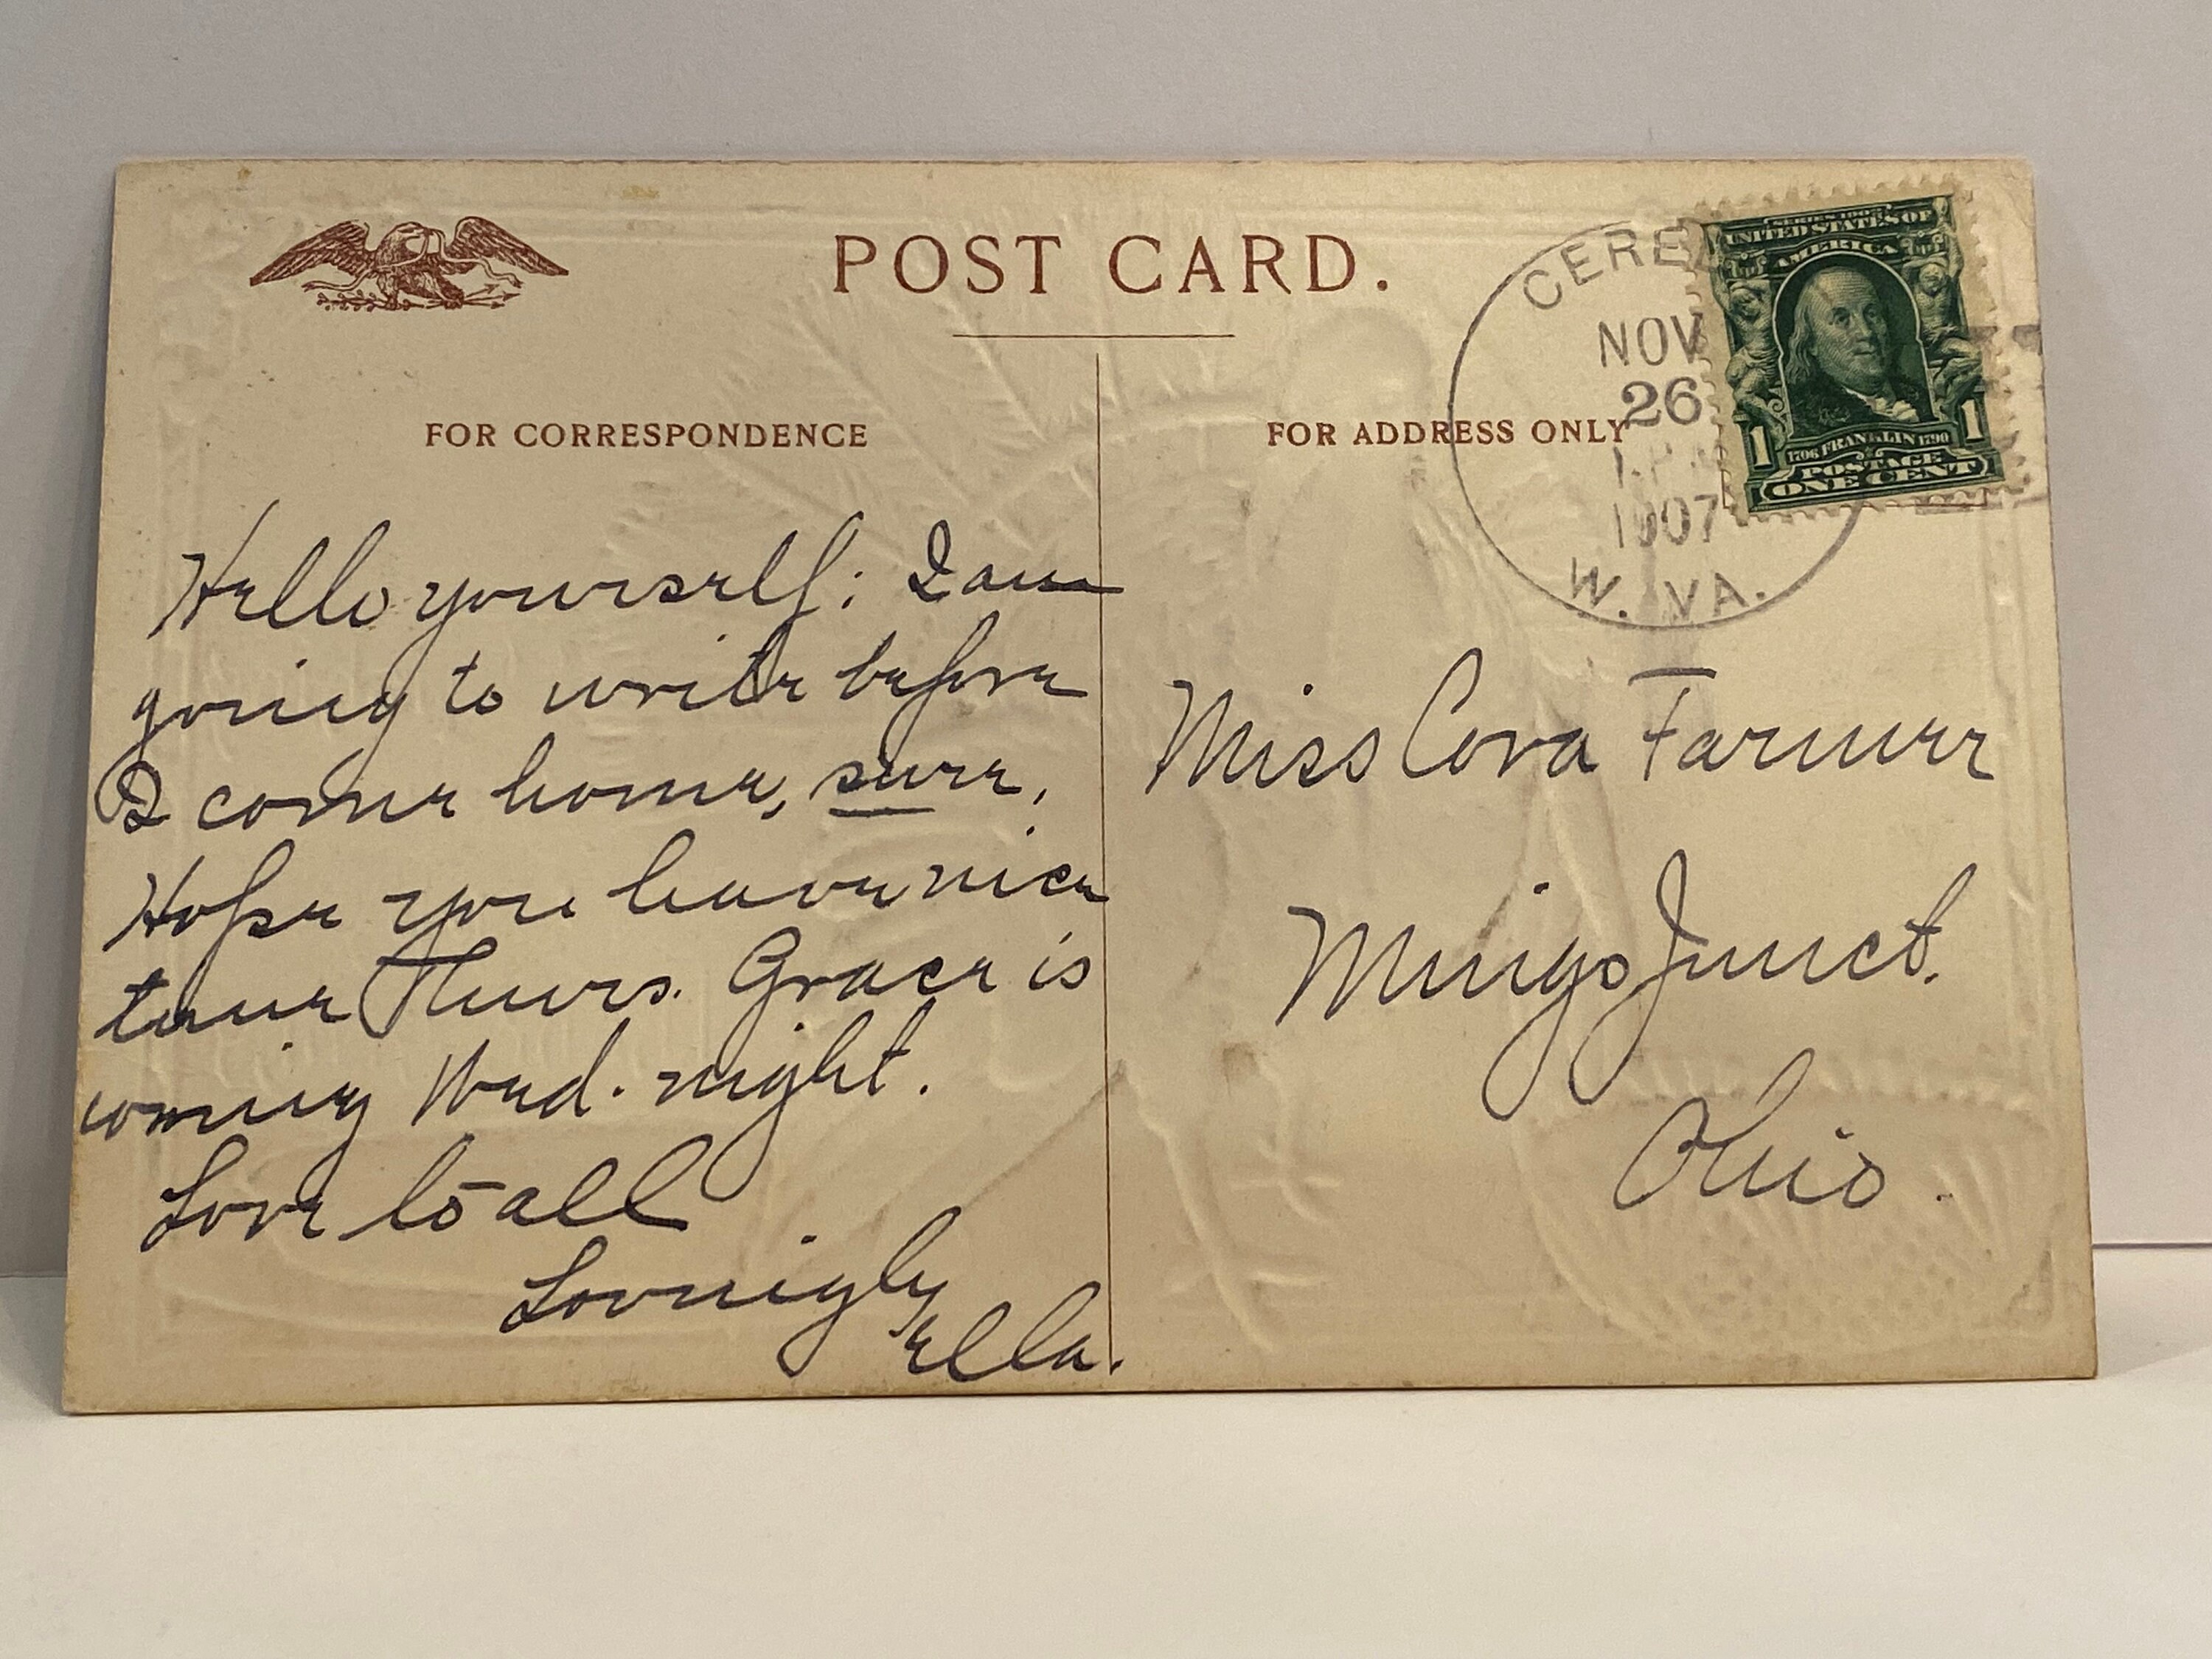 POST CARD.
FOR CORRESPONDENCE
Hello yourself: I am
going to write before
I come home, sure,
Hope you have nice
time Thurs. Grace is
coming Wed. night.
Love to all
Lovingly
Ella.
FOR ADDRESS ONLY
Miss Cora Farmer
Mingo Junct.
Ohio.
NOV
26
1907
W. VA.
SERIES 1902
UNITED STATES OF
AMERICA
1706 FRANKLIN 1790
1 1
POSTAGE
ONE CENT